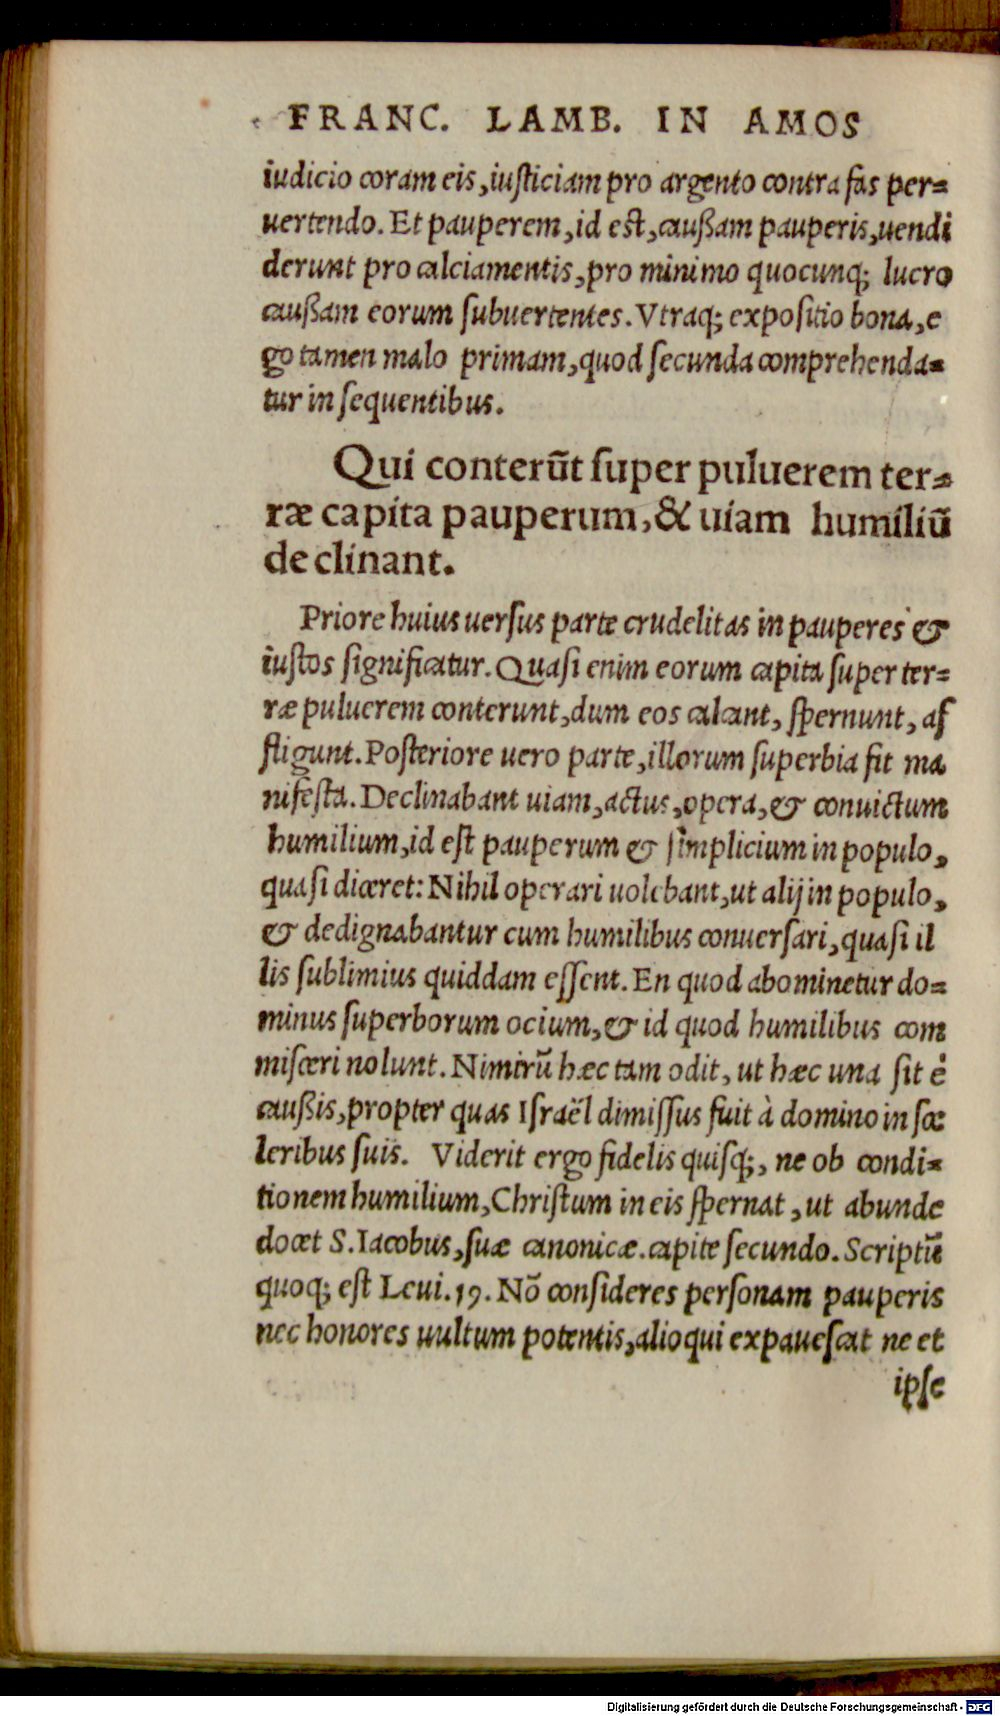 FRANC. LAMB. IN AMOS
iudicio coram eis, iusticiam pro argento contra fas per=
uertendo. Et pauperem, id est, caußam pauperis, uendi
derunt pro calciamentis, pro minimo quocunq; lucro
caußam eorum subuertentes. Vtraq; expositio bona, e
go tamen malo primam, quod secunda comprehenda=
tur in sequentibus.
Qui conterūt super puluerem ter=
ræ capita pauperum, & uiam humiliū
declinant.
Priore huius uersus parte crudelitas in pauperes &
iustos significatur. Quasi enim eorum capita super ter=
ræ puluerem conterunt, dum eos calcant, spernunt, af
fligunt. Posteriore uero parte, illorum superbia fit ma
nifesta. Declinabant uiam, actus, opera, & conuictum
humilium, id est pauperum & simplicium in populo,
quasi diceret: Nihil operari uolebant, ut alij in populo,
& dedignabantur cum humilibus conuersari, quasi il
lis sublimius quiddam essent. En quod abominetur do=
minus superborum ocium, & id quod humilibus com
misceri nolunt. Nimirū hæc tam odit, ut hæc una sit è
caußis, propter quas Israël dimissus fuit à domino in sce
leribus suis. Viderit ergo fidelis quisq;, ne ob condi=
tionem humilium, Christum in eis spernat, ut abunde
docet S. Iacobus, suæ canonicæ. capite secundo. Scriptū
quoq; est Leui. 19. Nō consideres personam pauperis
nec honores uultum potentis, alioqui expauescat ne et
ipse
Digitalisierung gefördert durch die Deutsche Forschungsgemeinschaft - DFG